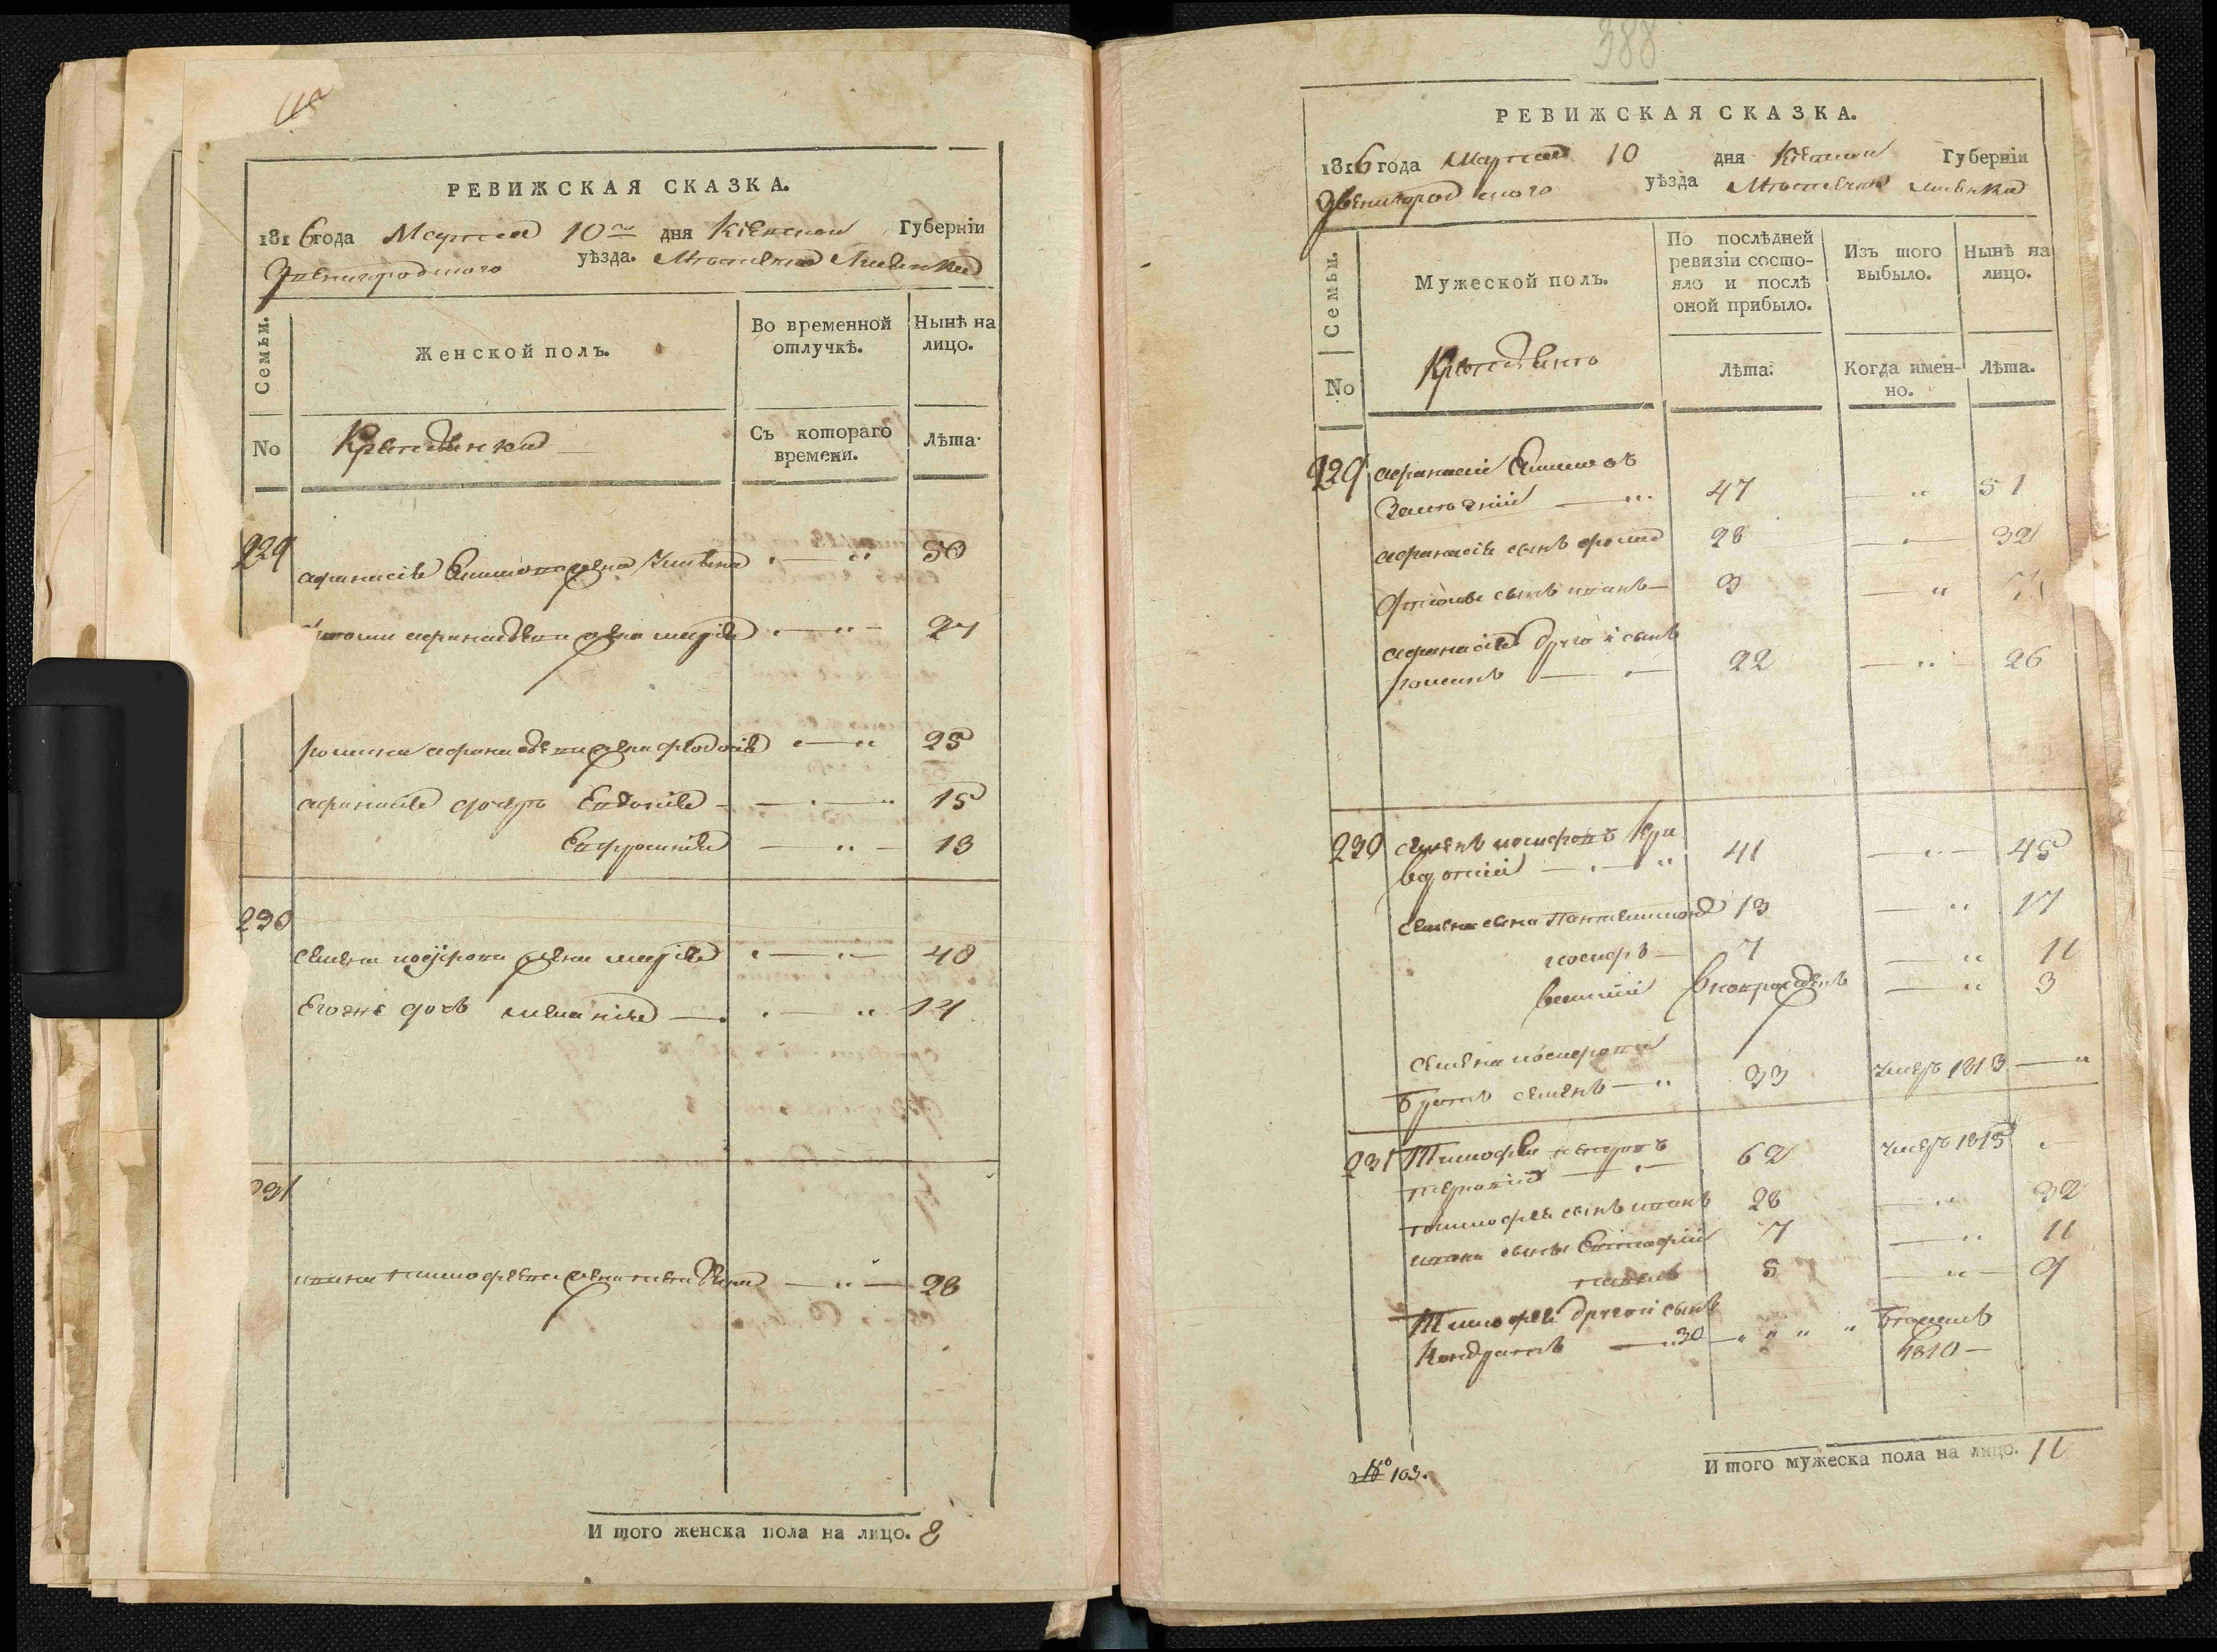 РЕВИЖСКАЯ СКАЗКА.
1816 года Марта 10 дня Кіевской Губерніи
Звенигородского уѣзда. Мѣстечка Лисянки
Семьи.
Женской полъ.
Во временной отлучкѣ.
Нынѣ на лицо.
No
Крестьянка
Съ котораго времени.
Лѣта.
229
Афанасія Якимова жена Ульяна 50
Афанасьева жена Марія 27
Романа Афанасьева жена Феодосія 25
Афанасія дочерь Евдокія 15
Евфросинія 13
230
Семена Іосифова жена Марія 40
Его же дочь Меланія 14
231
Ивана Тимофеева жена 28
И того женска пола на лицо. 8
388
РЕВИЖСКАЯ СКАЗКА.
1816 года Марта 10 дня Кіевской Губерніи
Звенигородского уѣзда Мѣстечка Лисянки
Семьи.
No
Мужеской полъ.
Крестьянго
По послѣдней ревизіи состояло и послѣ оной прибыло.
Изъ того выбыло.
Нынѣ на лицо.
Лѣта.
Когда именно.
Лѣта.
229 Афанасій Якимовъ
47 51
Афанасія сынъ Фома 28 32
сынъ Иванъ 3 7
Афанасія другой сынъ
Романъ 22 26
230 Семенъ Іосифовъ
41 45
Семена сына Пантелимонъ 13 17
Іосифъ 7 11
Василій вновьрожденъ 3
Семена Іосифова
братъ Семенъ 33 умеръ 1813
231 Тимофей Петровъ
62 умеръ 1815
Тимофея сынъ Иванъ 28 32
Ивана сыны Евстафій 7 11
Павелъ 5 9
Тимофея другой сынъ
Кондратъ 30 бѣжалъ
1810
No 103.
И того мужеска пола на лицо. 11